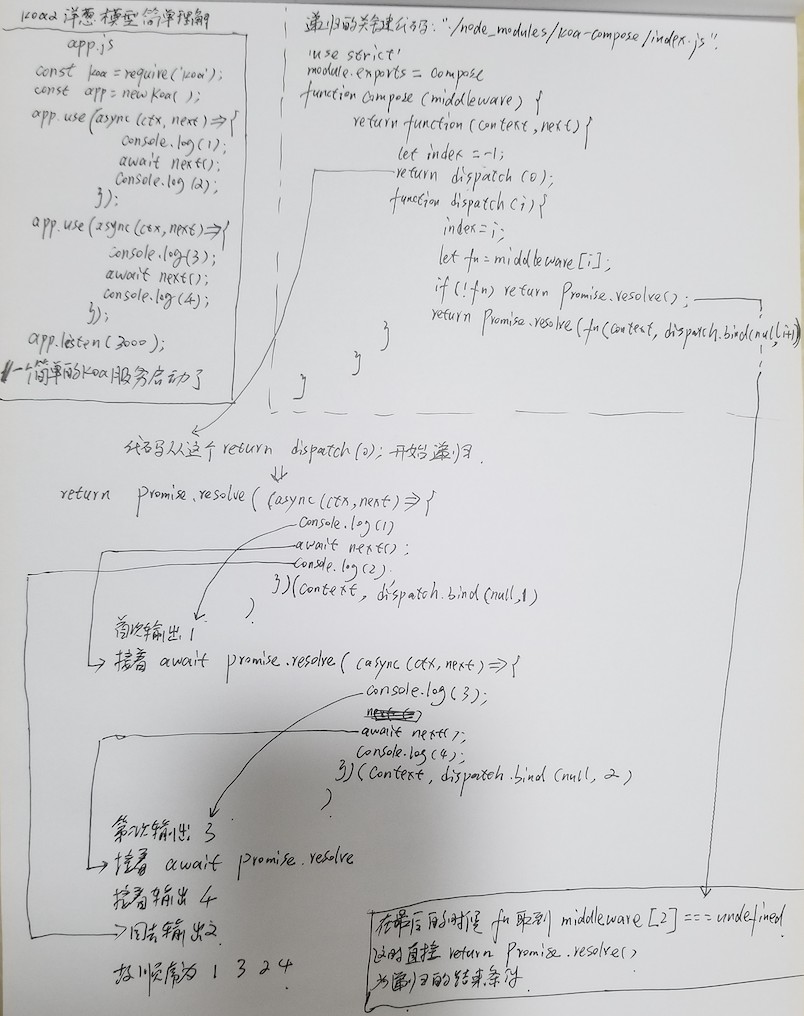 koa2 洋葱模型简单理解
app.js
const koa = require('koa');
const app = new Koa( );
app.use(async (ctx, next) => {
console.log(1);
await next();
console.log(2);
});
app.use(async (ctx, next) => {
console.log(3);
await next();
console.log(4);
});
app.listen(3000);
一个简单的Koa服务启动了
递归的关键代码: "./node_modules/koa-compose/index.js".
'use strict'
module.exports = compose
function compose (middleware) {
return function (context, next) {
let index = -1;
return dispatch (0);
function dispatch (i) {
index = i;
let fn = middleware [i];
if (!fn) return Promise.resolve();
return Promise.resolve(fn(context, dispatch.bind(null, i+1))
}
}
}
代码从这个 return dispatch (0); 开始递归.
return promise.resolve ( (async (ctx, next) => {
console.log(1)
await next();
console.log(2)
})(context, dispatch.bind (null, 1)
)
首次输出 1
接着 await promise.resolve ( (async (ctx, next) => {
console.log(3);
await next();
console.log(4);
})(context, dispatch.bind (null, 2)
)
第二次输出 3
接着 await promise.resolve
接着输出 4
回去输出2
故顺序为 1 3 2 4
在最后的时候 fn 取到 middleware [2] === undefined
这时直接 return Promise.resolve()
为递归的结束条件